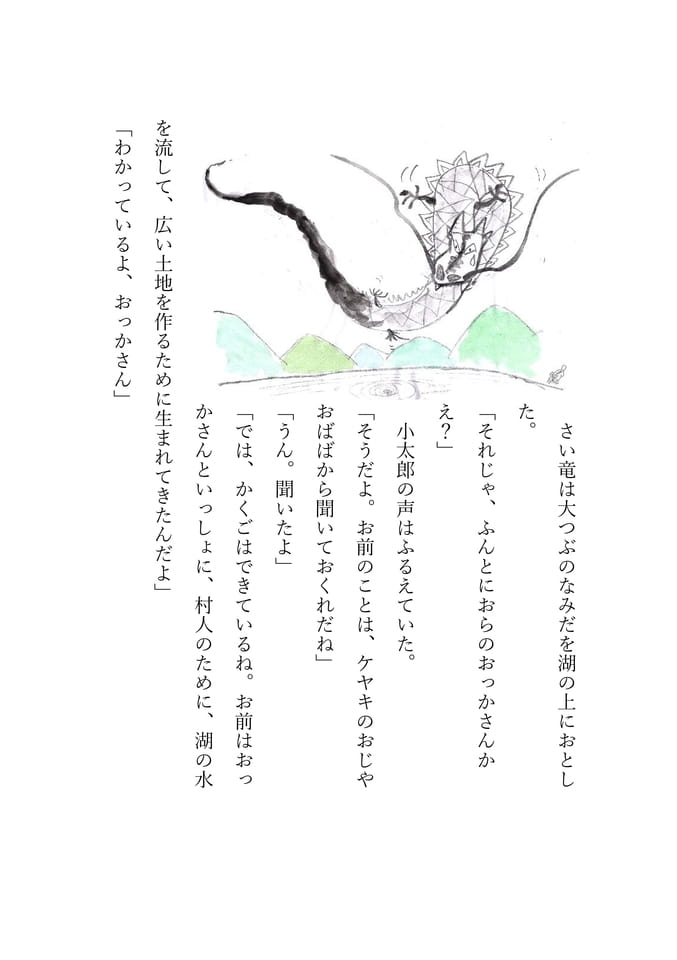 さい竜は大つぶのなみだを湖の上におとし
た。
「それじゃ、ふんとにおらのおっかさんか
え？」
　小太郎の声はふるえていた。
「そうだよ。お前のことは、ケヤキのおじや
おばばから聞いておくれだね」
「うん。聞いたよ」
「では、かくごはできているね。お前はおっ
かさんといっしょに、村人のために、湖の水
を流して、広い土地を作るために生まれてきたんだよ」
「わかっているよ、おっかさん」